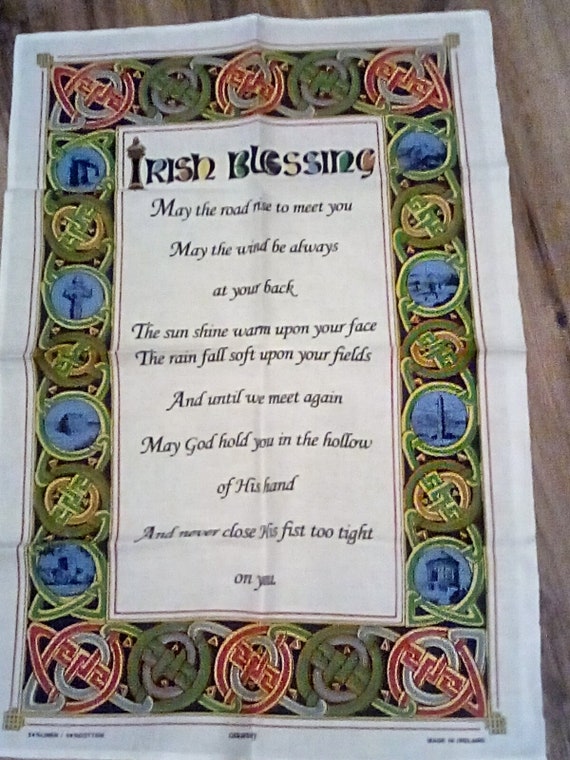 IRISH BLESSING
May the road rise to meet you
May the wind be always
at your back
The sun shine warm upon your face
The rain fall soft upon your fields
And until we meet again
May God hold you in the hollow
of His hand
And never close His fist too tight
on you.
MADE IN IRELAND